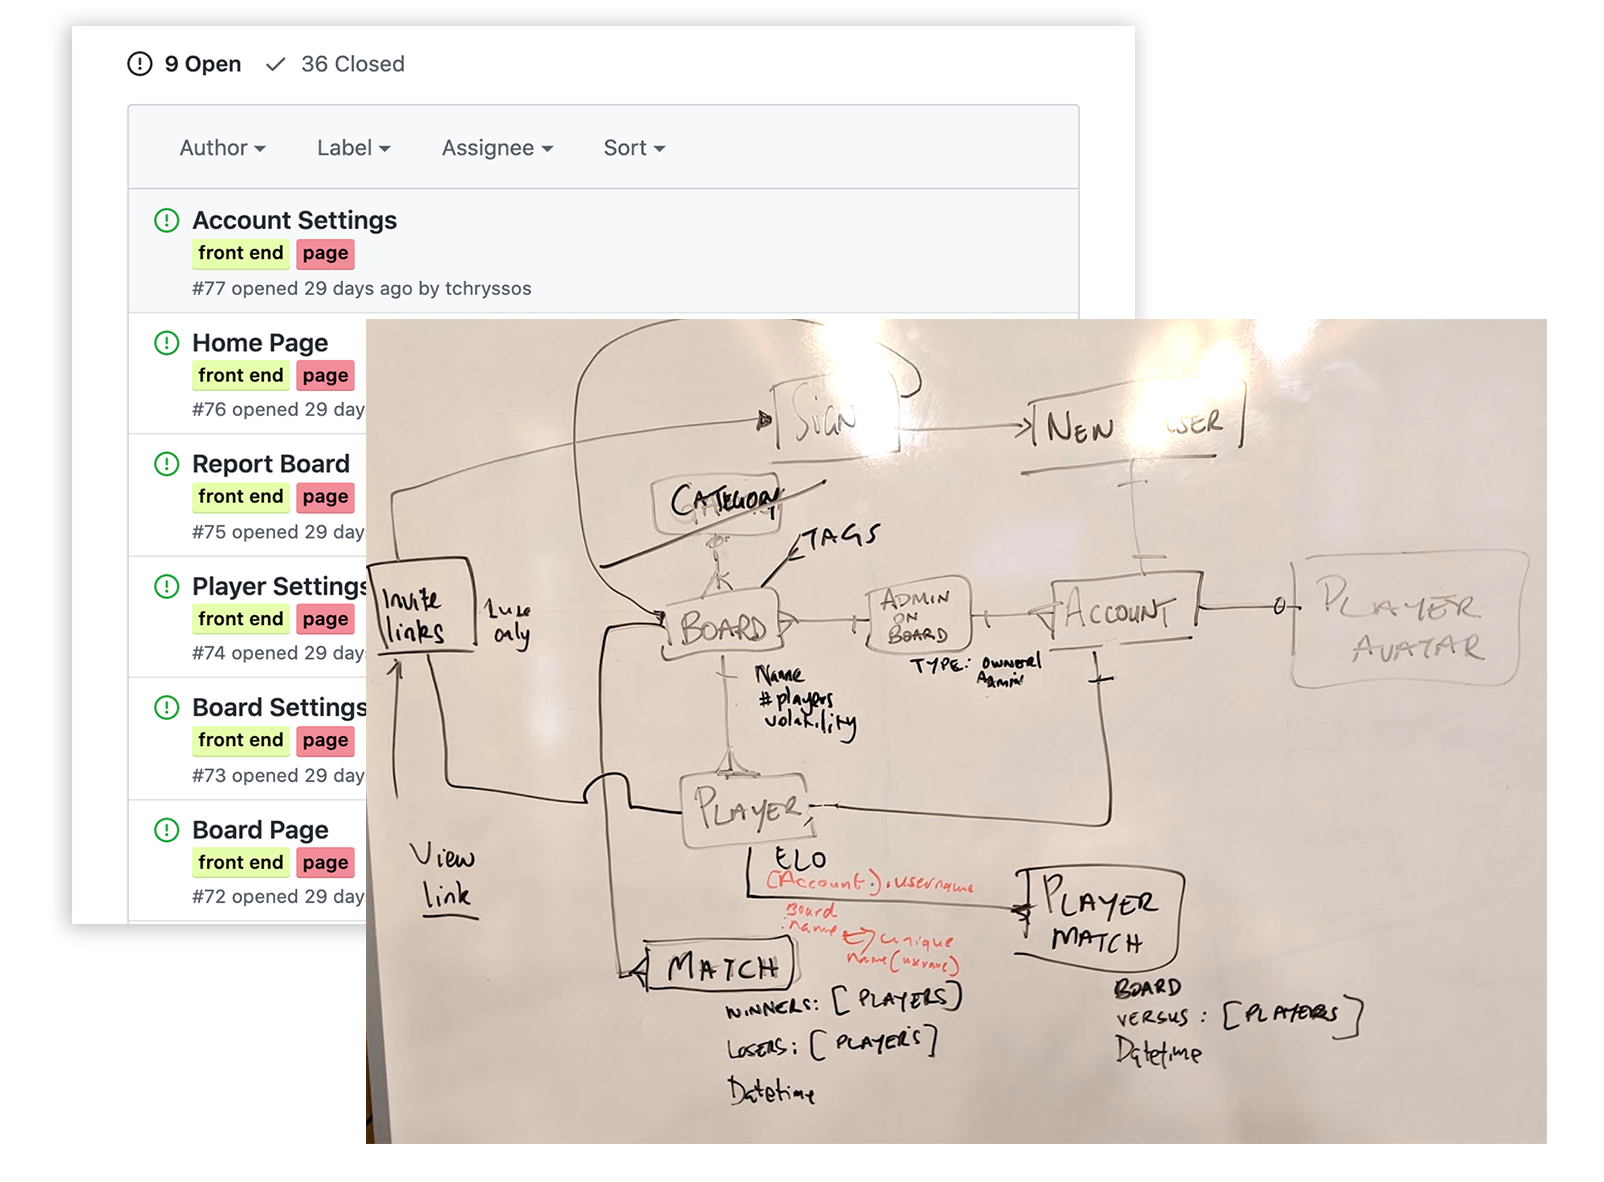 9 Open 36 Closed
Author Label Assignee Sort
Account Settings
front end page
#77 opened 29 days ago by tchryssos
Home Page
front end page
#76 opened 29 day
Report Board
front end page
#75 opened 29 day
Player Settings
front end page
#74 opened 29 day
Board Settings
front end page
#73 opened 29 day
Board Page
front end page
#72 opened 29 day
SIGN
NEW USER
CATEGORY
TAGS
Invite
links
1 use
only
BOARD
ADMIN
ON
BOARD
ACCOUNT
PLAYER
AVATAR
TYPE: OWNER/
Admin
Name
#players
volatility
PLAYER
View
link
ELO
(Account).username
Board
.name
unique
name(username)
PLAYER
MATCH
MATCH
WINNERS: [PLAYERS]
LOSERS: [PLAYERS]
Datetime
BOARD
VERSUS: [PLAYERS]
Datetime